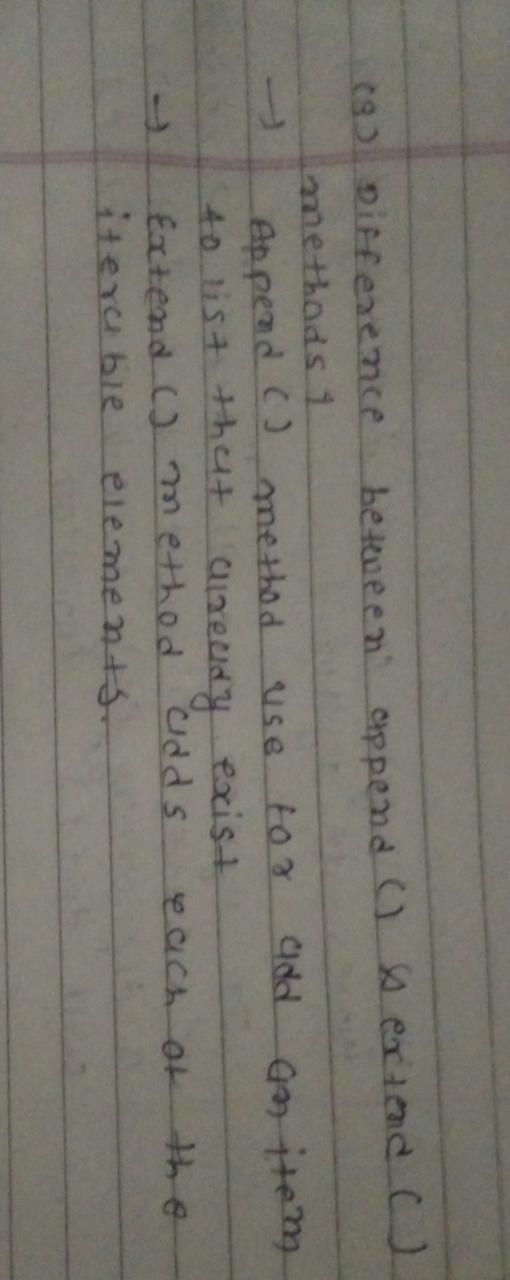 (9) Difference between append () & extend ()
methods?
→ Append () method use for add an item
to list that already exist
→ Extend () method adds each of the
iterable elements.